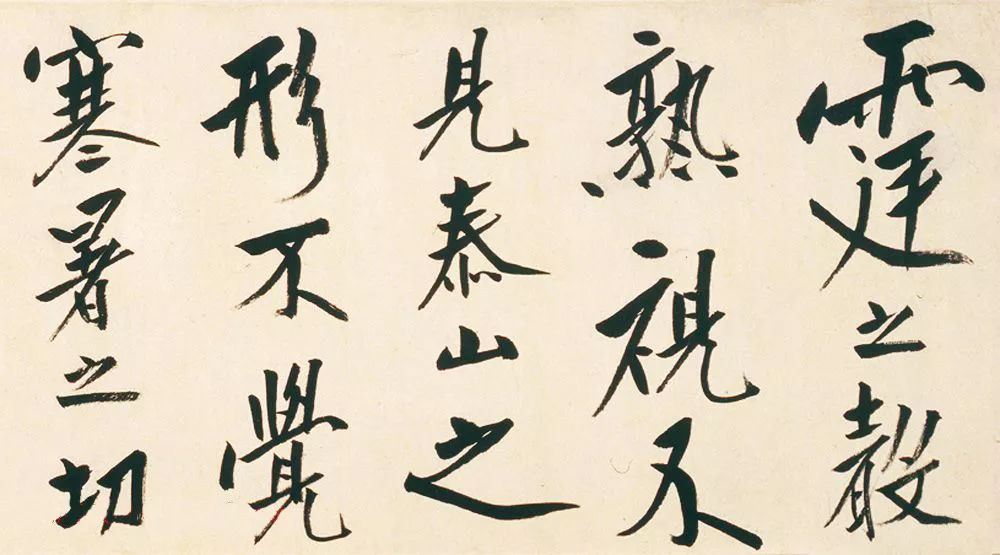 霆之聲
熟視不
見泰山之
形不覺
寒暑之切